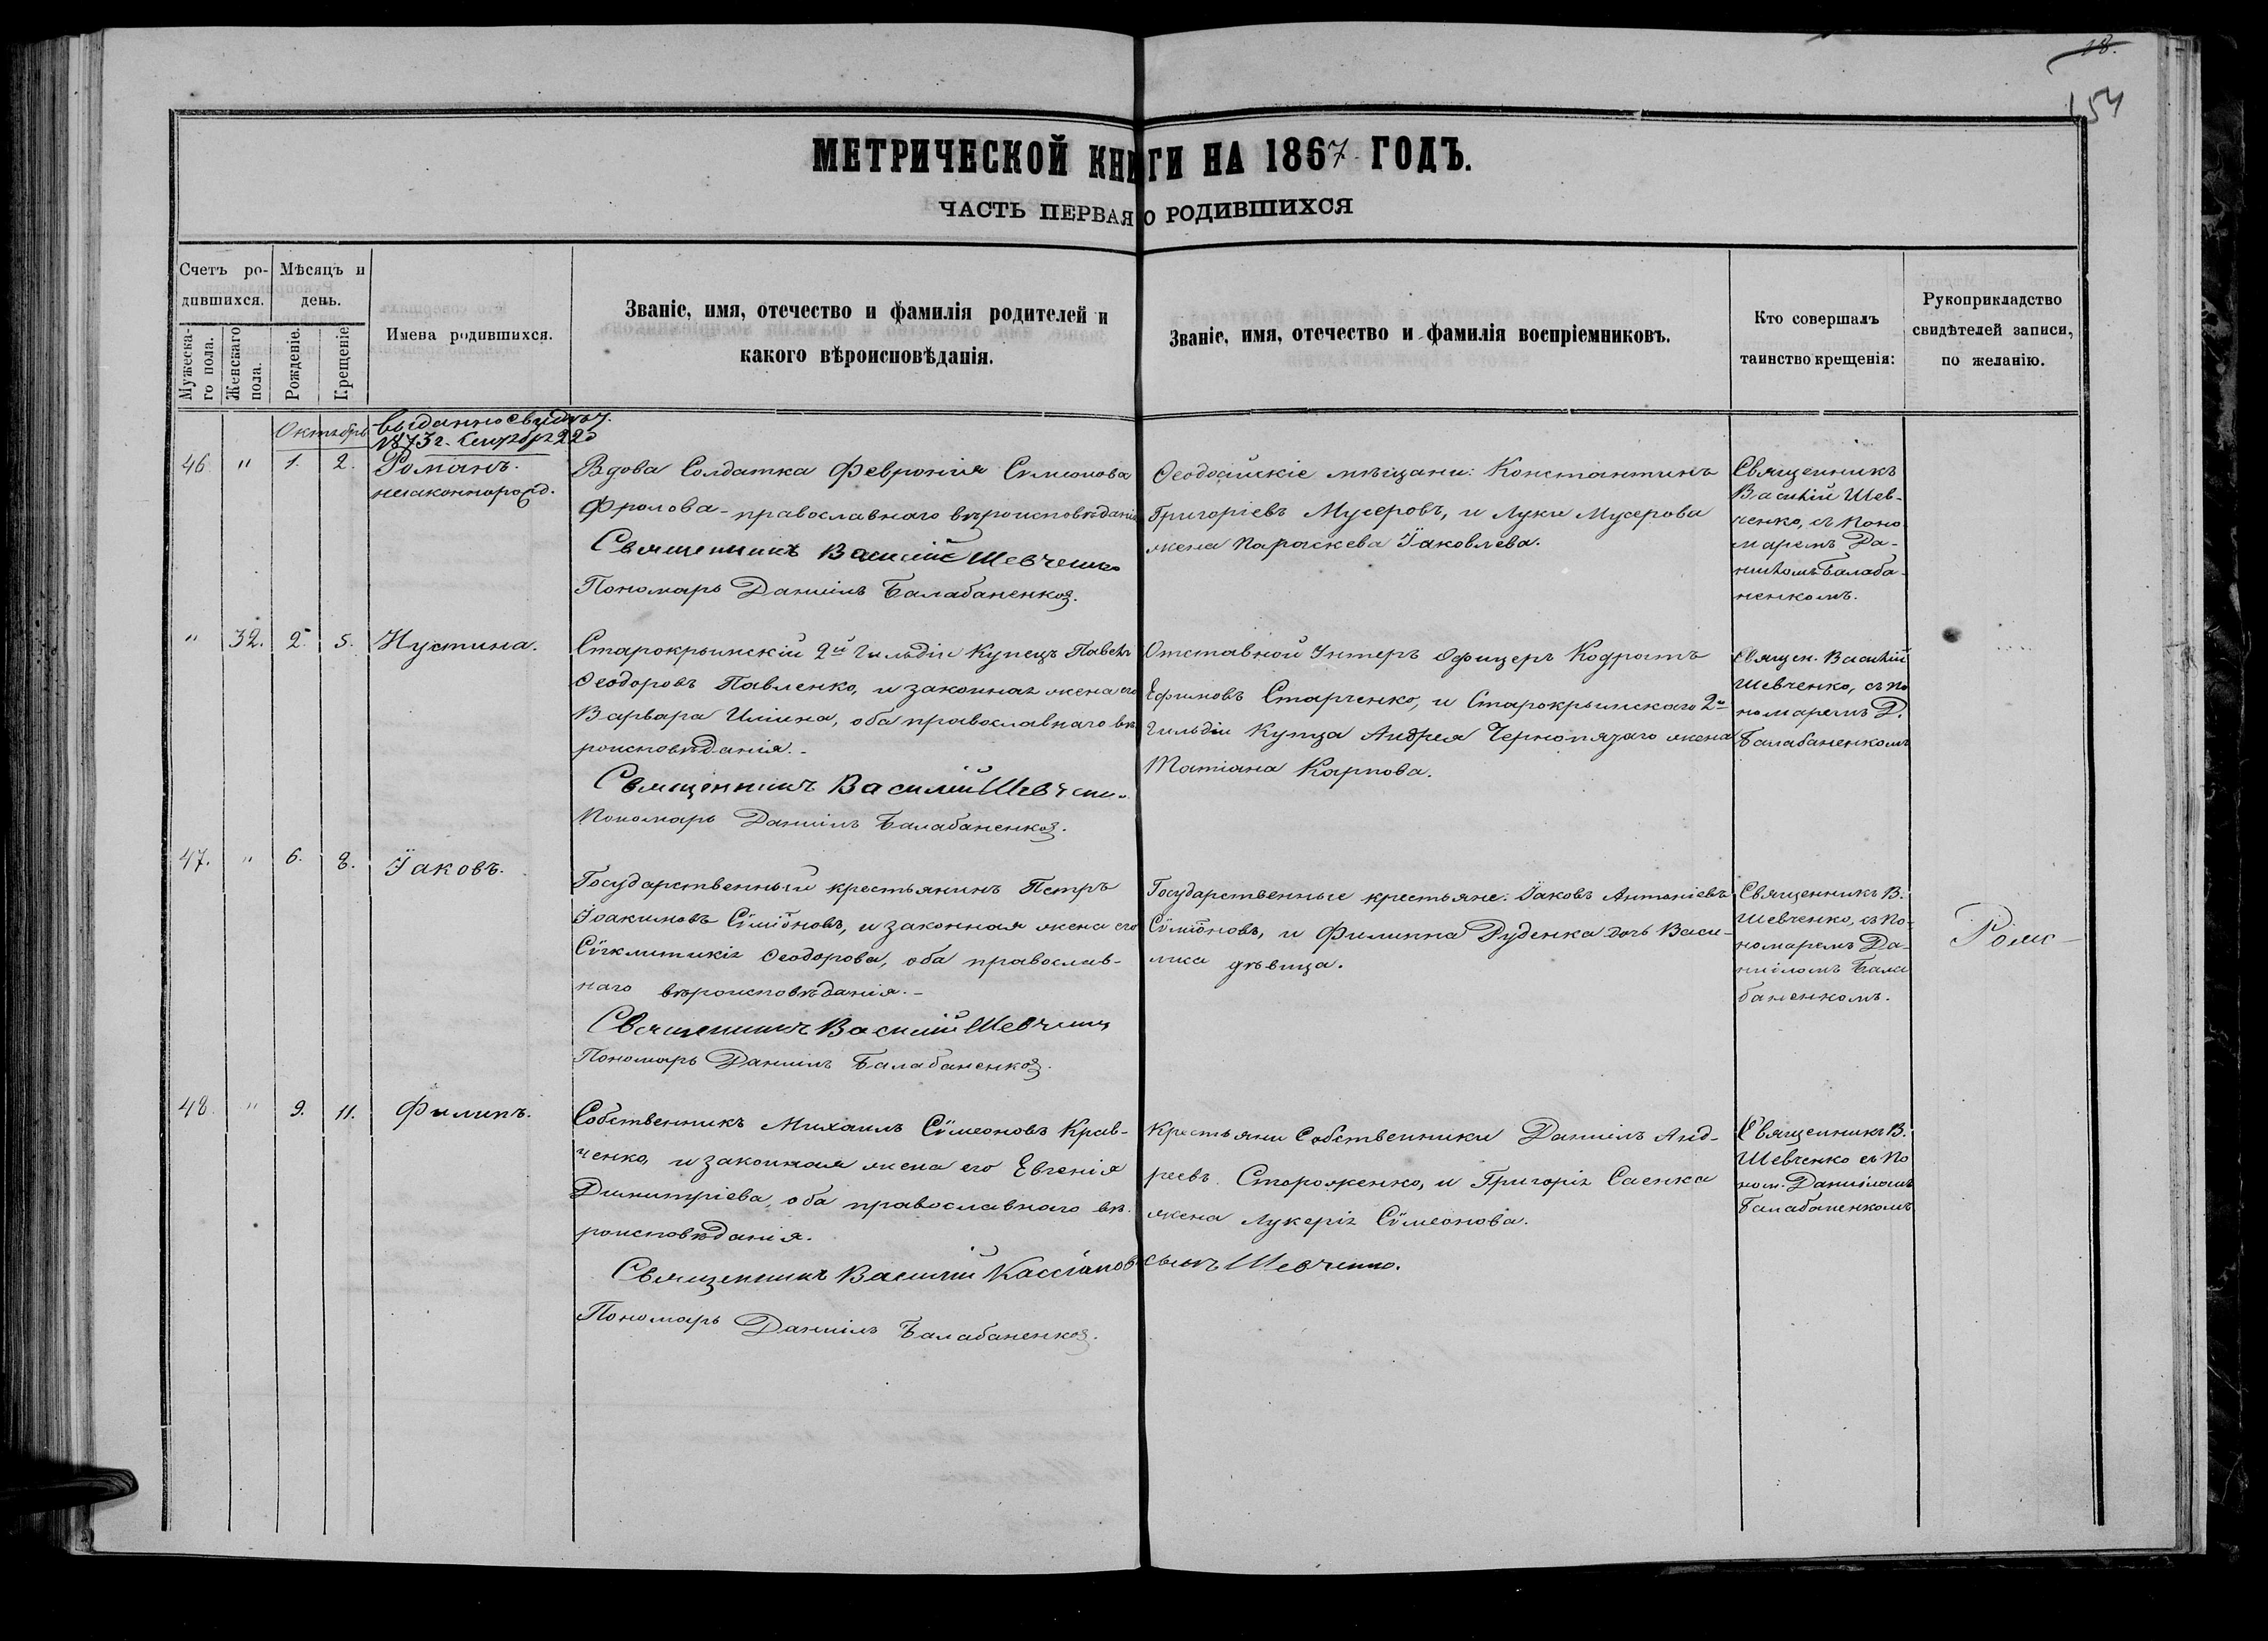 18.
154
МЕТРИЧЕСКОЙ КНИГИ НА 1867 ГОДЪ.
ЧАСТЬ ПЕРВАЯ О РОДИВШИХСЯ
Счетъ ро-
дившихся.
Мужеска-
го пола.
Женскаго
пола.
Мѣсяцъ и
день.
Рожденіе.
Крещеніе.
Имена родившихся.
Званіе, имя, отечество и фамилія родителей и
какого вѣроисповѣданія.
Званіе, имя, отечество и фамилія воспріемниковъ.
Кто совершалъ
таинство крещенія:
Рукоприкладство
свидѣтелей записи,
по желанію.
Октябрь
выданно свидѣт.
1873 г. Сентября 22
46 " 1. 2. Романъ.
незаконнорожд.
Вдова Солдатка Февронія Симеонова
Фролова - православнаго вѣроисповѣданія
Священникъ Василій Шевченко
Пономарь Даніилъ Балабаненко.
Ѳеодосійскіе мѣщани: Константинъ
Григоріевъ Мусеровъ, и Луки Мусерова
жена Параскева Іаковлева.
Священникъ
Василій Шев-
ченко, съ поно
маремъ Да-
ниіломъ Балаба-
ненкомъ.
" 32. 2. 5. Иустина.
Старокрымскій 2й гильдіи Купецъ Павелъ
Ѳеодоровъ Павленко, и законная жена его
Варвара Иліина, оба православнаго вѣ
роисповѣданія. -
Священникъ Василій Шевченко
Пономарь Даніилъ Балабаненко.
Отставной Унтеръ Офицеръ Кодратъ
Ефимовъ Старченко, и Старокрымскаго 2й
гильдіи Купца Андрея Чернопязаго жена
Татіана Карпова.
Священ. Василій
Шевченко, съ по
номаремъ Д.
Балабаненкомъ
47. " 6. 8. Іаковъ.
Государственный крестьянинъ Петръ
Іоакимовъ Симіоновъ, и законная жена его
Сѵгклитикія Ѳеодорова, оба православ-
наго вѣроисповѣданія. -
Священникъ Василій Шевченко
Пономарь Даніилъ Балабаненко.
Государственные крестьяне: Іаковъ Антоніевъ
Сѵміоновъ, и Филиппа Руденка дочь Васи-
лиса дѣвица.
Священникъ В.
Шевченко, съ по-
номаремъ Да-
ниіломъ Бала
баненкомъ.
48. " 9. 11. Филипъ.
Собственникъ Михаилъ Сѵмеоновъ Крав-
ченко, и законная жена его Евгенія
Димитріева, оба православнаго вѣ-
роисповѣданія.
Священникъ Василій Кассіановъ сынъ Шевченко.
Пономарь Даніилъ Балабаненко.
Крестьяни Собственники Даніилъ Анд-
реевъ Стороженко, и Григорія Саенка
жена Лукерія Сѵмеонова.
Священникъ В.
Шевченко съ по
ном. Даниіломъ
Балабаненкомъ